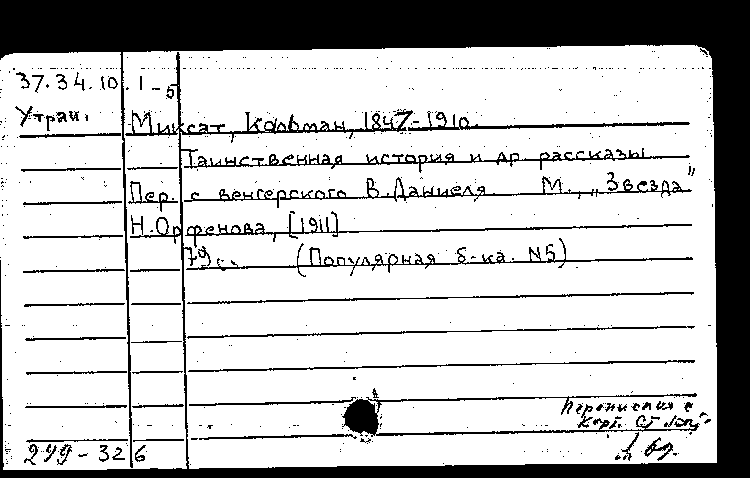 37.34.10.1-5
Утрач.
Миксат, Кальман, 1847-1910.
Таинственная история и др. рассказы
Пер. с венгерского В. Даниеля. М., „Звезда"
Н. Орфенова, [1911]
79 с. (Популярная б-ка. N5)
Переписана с
карт.
249-326